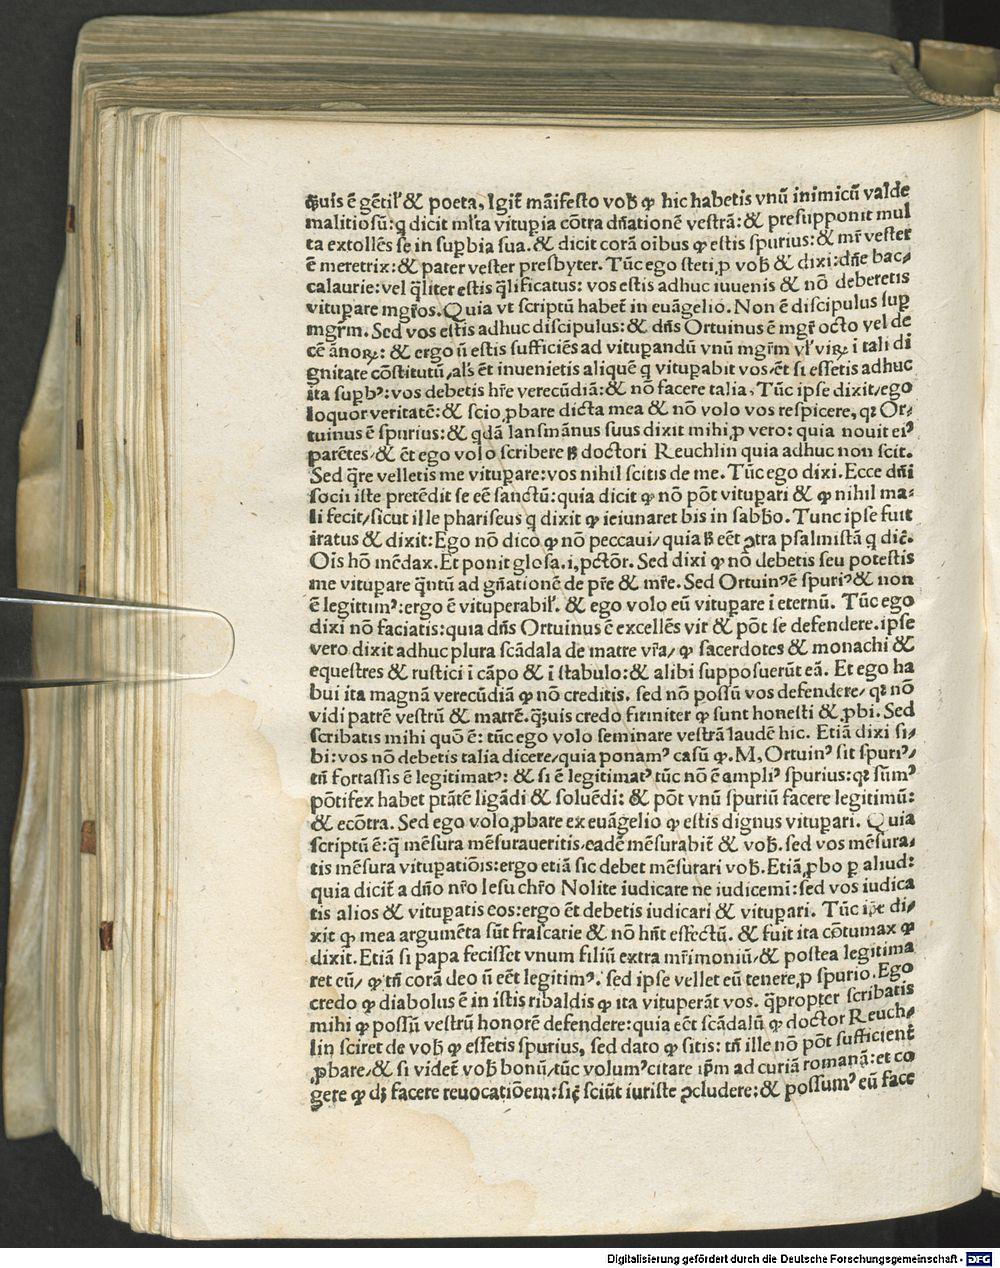 q̃uis ē gētil̕ & poeta, Igit̃ māifesto vob̄ ꝙ hic habetis vnū inimicū valde
malitiosū: q dicit ml̕ta vituꝑia cōtra dñationē vestrā: & presupponit mul
ta extollēs se in suꝑbia sua. & dicit corā oībus ꝙ estis spurius: & mr̄ vester
ē meretrix: & pater vester presbyter. Tūc ego steti ꝓ vob̄ & dixi: dñe bac⸗
calaurie: vel q̄liter estis q̄lificatus: vos estis adhuc iuuenis & nō deberetis
vituꝑare mgr̄os. Quia vt scriptū habet̄ in euāgelio. Non ē discipulus suꝑ
mgr̄m. Sed vos estis adhuc discipulus: & dñs Ortuinus ē mgr̄ octo vel de
cē ānoꝝ: & ergo ū estis sufficiēs ad vituꝑandū vnū mgr̄m vl̕ viꝝ i tali di
gnitate cōstitutū/al's ēt inuenietis aliquē q vituꝑabit vos/ēt si essetis adhuc
ita suꝑbꝰ: vos debetis hr̄e verecūdiā: & nō facere talia, Tūc ipse dixit/ego
loquor veritatē: & scio ꝓbare dicta mea & nō volo vos respicere, qꝛ Or⸗
tuinus ē spurius: & qdā lansmānus suus dixit mihi ꝓ vero: quia nouit eiꝰ
parētes/& ēt ego volo scribere ß doctori Reuchlin quia adhuc non scit.
Sed q̄re velletis me vituꝑare: vos nihil scitis de me. Tūc ego dixi. Ecce dñi
socii iste pretēdit se eē sanctū: quia dicit ꝙ nō pōt vituꝑari & ꝙ nihil ma⸗
li fecit/sicut ille phariseus q dixit ꝙ ieiunaret bis in sabb̄o. Tunc ipse fuit
iratus & dixit: Ego nō dico ꝙ nō peccaui/quia ß eēt ꝯtra psalmistā q dic̄.
Ois hō mēdax. Et ponit glosa. i, pctōr. Sed dixi ꝙ nō debetis seu potestis
me vituꝑare q̄ntū ad gñationē de pr̄e & mr̄e. Sed Ortuinꝰ ē spuriꝰ & non
ē legittimꝰ: ergo ē vituperabil̕. & ego volo eū vituꝑare ī eternū. Tūc ego
dixi nō faciatis: quia dñs Ortuinus ē excellēs vir & pōt se defendere. ipse
vero dixit adhuc plura scādala de matre vr̄a/ ꝙ sacerdotes & monachi &
equestres & rustici ī cāpo & ī stabulo: & alibi supposuerūt eā. Et ego ha
bui ita magnā verecūdiā ꝙ nō creditis. sed nō possū vos defendere/ qꝛ nō
vidi patrē vestrū & matrē. q̃uis credo firmiter ꝙ sunt honesti & ꝓbi. Sed
scribatis mihi quō ē: tūc ego volo seminare vestrā laudē hic. Etiā dixi si⸗
bi: vos nō debetis talia dicere/quia ponamꝰ casū ꝙ. M, Ortuinꝰ sit spuriꝰ/
tñ fortassis ē legitimatꝰ: & si ē legitimatꝰ tūc nō ē ampliꝰ spurius: qꝛ sūmꝰ
pōtifex habet ptātē ligādi & soluēdi: & pōt vnū spuriū facere legitimū:
& ecōtra. Sed ego volo ꝓbare ex euāgelio ꝙ estis dignus vituꝑari. Quia
scriptū ē: q̄ mēsura mēsuraueritis/eadē mēsurabit̄ & vob̄. sed vos mēsura⸗
tis mēsura vituꝑatiōis: ergo etiā sic debet mēsurari vob̄. Etiā ꝓbo ꝑ aliud:
quia dicit̄ a dño nr̄o Iesu chr̄o Nolite iudicare ne iudicemī: sed vos iudica
tis alios & vituꝑatis eos: ergo ēt debetis iudicari & vituꝑari. Tūc ip̄e di⸗
xit ꝙ mea argumēta sūt frascarie & nō hñt effectū. & fuit ita cōtumax ꝙ
dixit. Etiā si papa fecisset vnum filiū extra mr̄imoniū/& postea legitima
ret eū/ ꝙ tñ corā deo ū eēt legitimꝰ. sed ipse vellet eū tenere ꝓ spurio. Ego
credo ꝙ diabolus ē in istis ribaldis ꝙ ita vituperāt vos. q̄propter scribatis
mihi ꝙ possū vestrū honorē defendere: quia eēt scādalū ꝙ doctor Reuch⸗
lin sciret de vob̄ ꝙ essetis spurius, sed dato ꝙ sitis: tñ ille nō pōt sufficient̄
ꝓbare/& si videt̄ vob̄ bonū/tūc volumꝰ citare ip̄m ad curiā romanā: et co
gere ꝙ dꝫ facere reuocatiōem: sic̄ sciūt iuriste ꝯcludere: & possumꝰ eū face
Digitalisierung gefördert durch die Deutsche Forschungsgemeinschaft - DFG